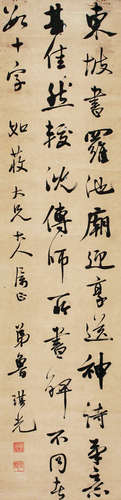 東坡書羅池廟迎享送神詩筆意
甚佳然較沈傳師所書碑不同者
數十字 如茮大兄大人屬正 弟魯琪光